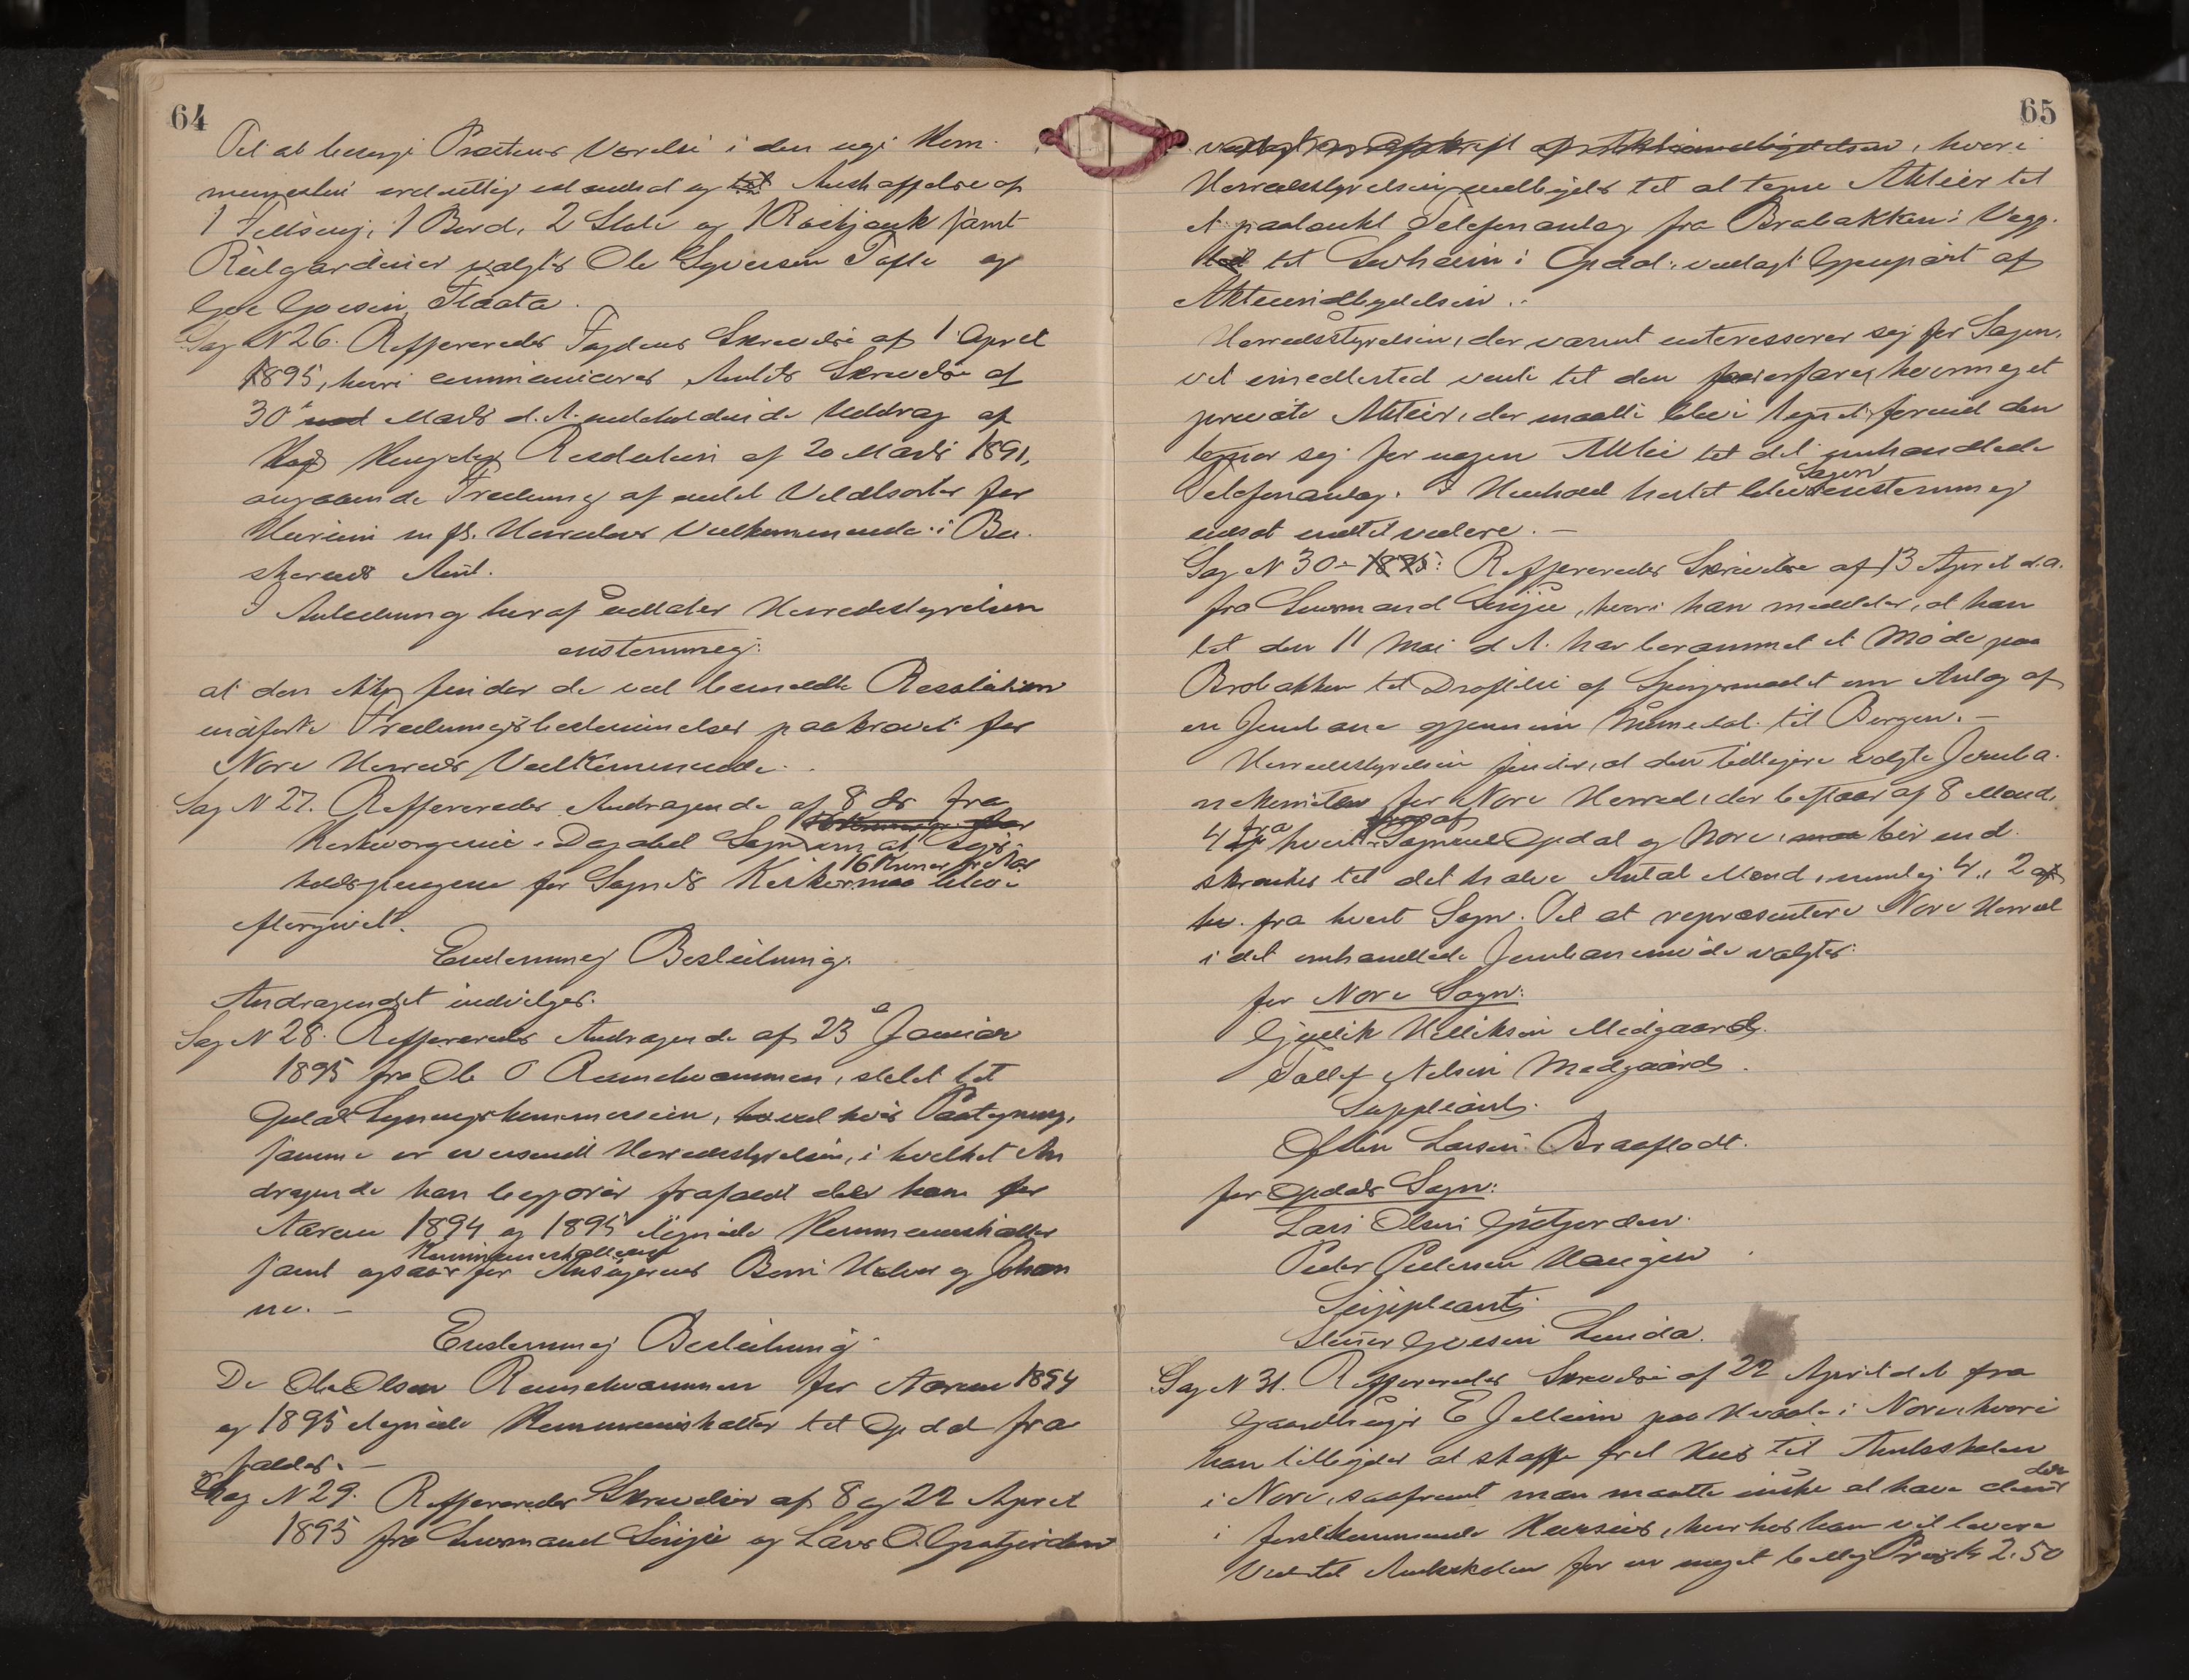 64
Til at besørge Præstens Værelse i den nye Kom-
munestue ordentlig istandsat og til Anskaffelse af
1 Feltseng, 1 Bord, 2 Stole og 1 samt
Rulgardiner valgtes Ole Syversen Tofte og
Goe Goesen Flaata.
Sag N 26. Refereredes Fogdens Skrivelse af 1 April
1895, hvori communiceres Amtets Skrivelse af
30 Marts d. A. indeholdende Uddrag af
Kongelig Resolution af 20 Marts 1891,
angaaende Fredning af endel Vildtsorter for
m fl. Herreder Vedkommende i Bu-
skeruds Amt.
I Anledning heraf udtaler Herredsstyrelsen
enstemmig:
at den ikke finder de ved bemeldte Resolution
indførte Fredningsbestemmelser paakrævet for
Nore Herreds Vedkommende.
Sag N 27. Refereredes Andragende af 8 ds fra
Kirkeværgerne i Dagalid Sogn om at
16 Kroner
holdspengene for Sognets Kirke maa blive
eftergivet.
Enstemmig Beslutning:
Andragendet indvilges.
Sag N 28. Refereredes Andragende af 23 Januar
1895 fra Ole O Ramshvammen, stilet til
Opdal Ligningskommission, ved hvis Paategning,
samme er oversendt Herredsstyrelsen, i hvilket An
dragende han begjærer frafaldt de ham for
Aarene 1894 og 1895 ilignede Kommuneskatter
Kommuneskatterne
samt ogsaa for Ansøgerens Børn Halvor og Johan
ne. –
Enstemmig Beslutning:
De Ole Olsen Ramshvammen for Aarene 1894
og 1895 ilignede Kommuneskatter til Opdal fra
falder. –
Sag N 29. Refereredes Skrivelser af 8 og 22 April
1895 fra Lensmand Sinjie og Lars O. Gjøtjorden
65
vedlagt en Afskrift af Aktieindbydelsen, hvori
Herredsstyrelsen indbydes til at tegne Aktier til
et paatænkt Telefonanlæg fra Brobakken i Veg-
til Sevheim i Opdal, vedlagt Gjenpart af
Aktieindbydelsen.
Herredsstyrelsen, der varmt interesserer sig for Sagen,
vil imidlertid vente til den faar erfare, hvormeget
private Aktier, der maatte blive tegnet, forend den
tegner sig for nogen Aktie til det omhandlede
Sagen
Telefonanlæg. I Henhold hertil blev enstemmig
udsat indtil videre. –
Sag N 30 – 1895: Refereredes Skrivelse af 13 April d.a.
fra Lensmand Sinjie, hvori han meddeler, at han
til den 11 Mai d A. har berammet et Møde paa
Brobakken til Drøftelse af Spørgsmaalet om Anlæg af
en Jernbane gjennem Numedal til Bergen. –
Herredsstyrelsen finder, at den tidligere valgte Jernba-
nekomite for Nore Herred, der bestaar af 8 Mænd,
fra af
4 hvert Sognene Opdal og Nore, bør ind
skrænkes til det halve Antal Mænd, nemlig 4, 2 af
fra hvert Sogn. Til at repræsentere Nore Herred
i det omhandlede Jernbanemøde valgtes:
for Nore Sogn:
Gjullik Hellikson Medgaard.
Tollef Nelsen Medgaard.
Suppleant:
Østen Larsen Braaflodt.
for Opdals Sogn:
Lars Olsen Gjøtjorden.
Peder Pedersen Haugen.
Suppleant:
Stener Goesen Lunda.
Sag N 31. Refereredes Skrivelse af 22 April d A fra
Gaardbruger E Jelleim paa i Nore, hvori
han tilbyder at skaffe frit Hus til Amtsskolen
den
i Nore, saafremt man maatte ønske at have
i førstkommende, hvorhos han vil levere
Ved til Amtsskolen for en meget billig Pris, Kr 2.50